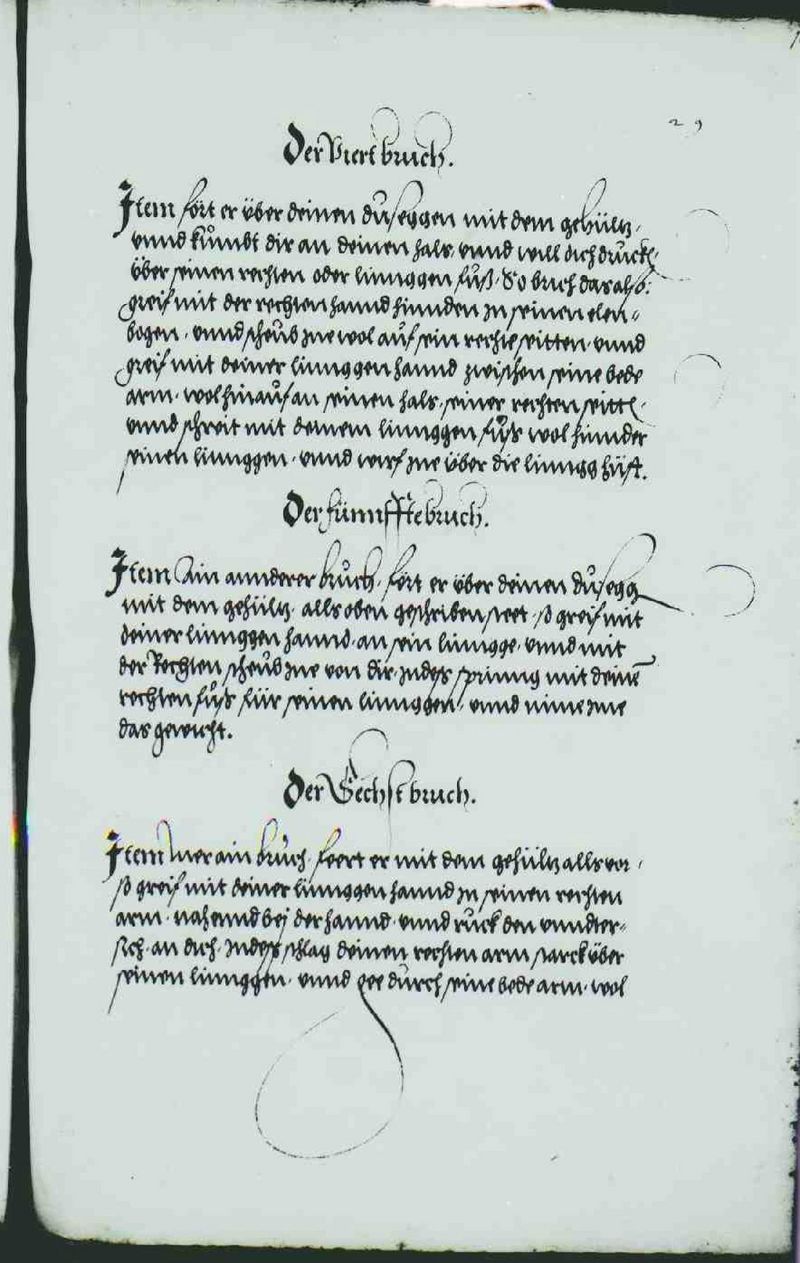 29
Der Viert bruch.
Item fort er über deinen du seggen mit dem gehültz,
vnnd kůmbt dir an deinen hals, vnnd will dich druckh
über seinen rechten oder linnggen fuß. So bruch das also:
greif mit der rechten hannd hinnden in seinen elen=
bogen, vnnd scheub ine wol auf sein rechte seitten, vnnd
greif mit deiner linnggen hannd zwischen seine bede
arm, wol hinauf an seinen hals, seiner rechten seittn,
vnnd schreit mit deinem linnggen fůß wol hinnder
seinen linnggen, vnnd wirf ine über die linngg hüft.
Der fünnffte bruch.
Item Ain annderer bruch, fort er über deinen du segg
mit dem gehültz, alls oben geschriben steet, so greif mit
deiner linnggen hannd, an sein lünngge, vnnd mit
der Rechten scheub ine von dir, indes spring mit deinē
rechten fůß für seinen linnggen, vnnd nime ine
das gewicht.
Der Sechst bruch.
Item Mer ain bruch, feert er mit dem gehültz alls vor,
so greif mit deiner lünnggen hannd in seinen rechten
arm, nahennd bej der hannd, vnnd ruck den vnnder=
sich, an dich, Indes schlag deinen rechten arm starck über
seinen linnggen, vnnd gee durch seine bede arm, wol